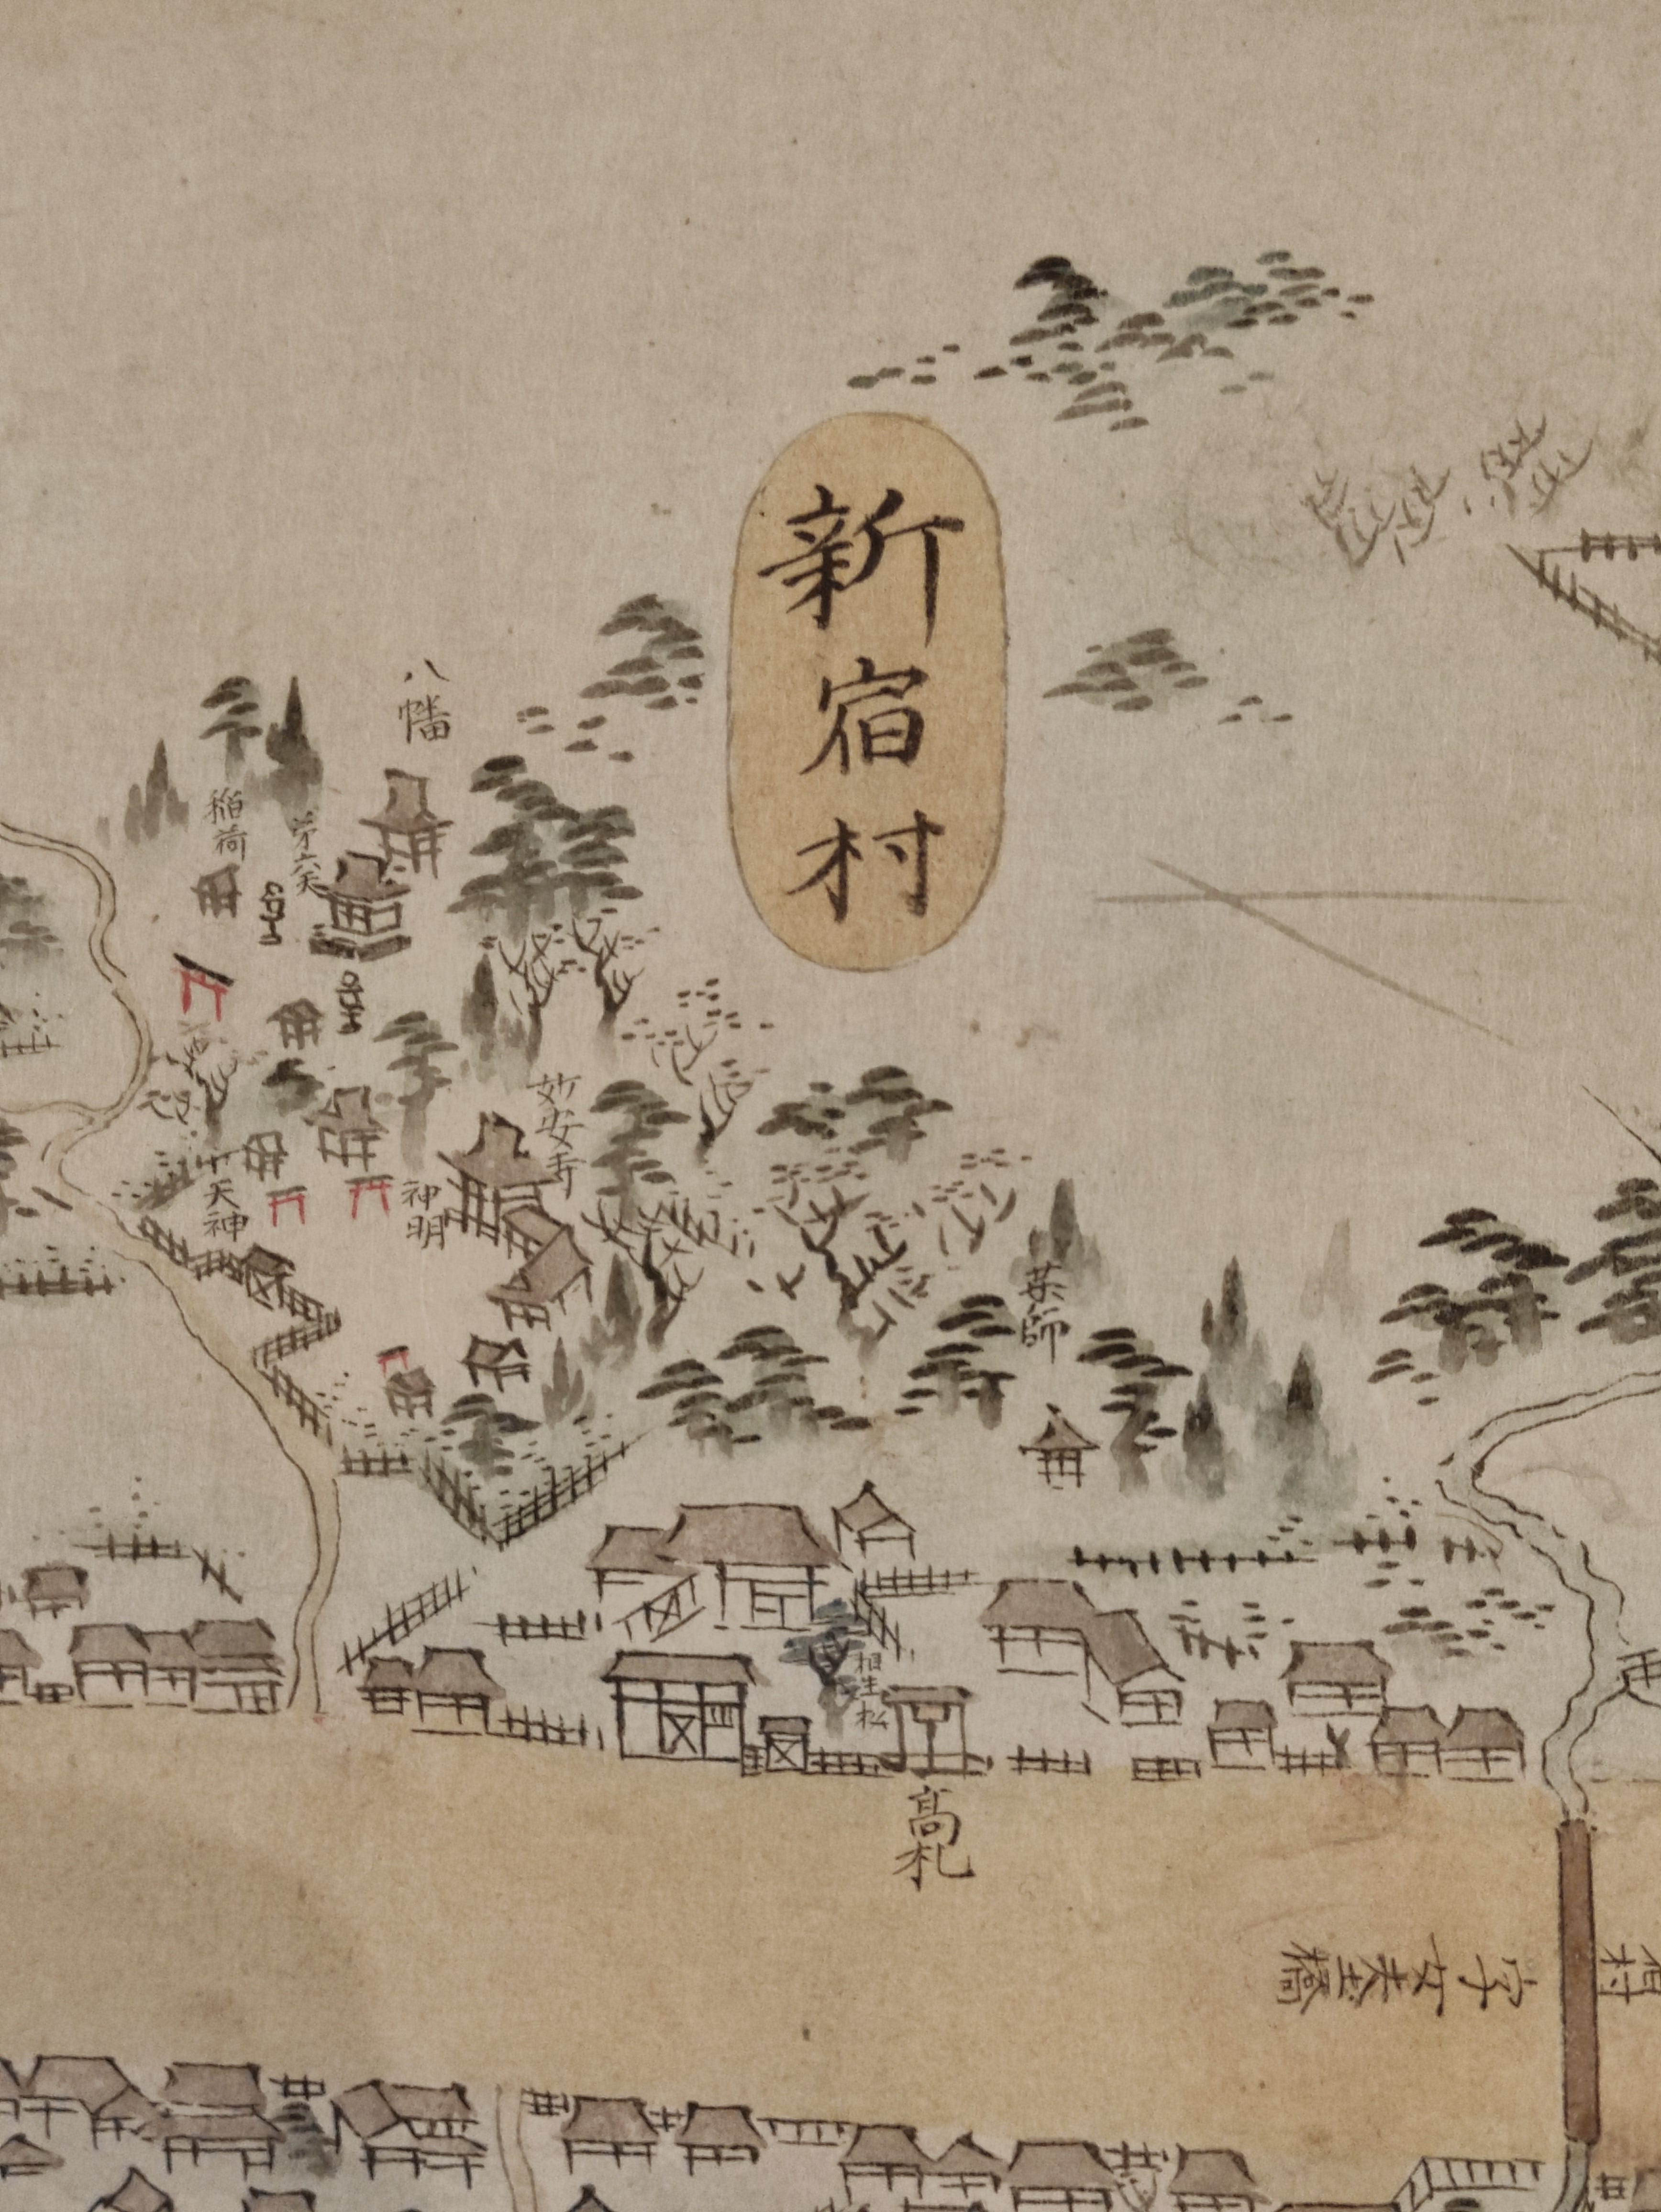 新宿村
八幡
稲荷
第六天
妙安寺
神明
天神
薬師
相生松
高札
字女夫橋
宿村